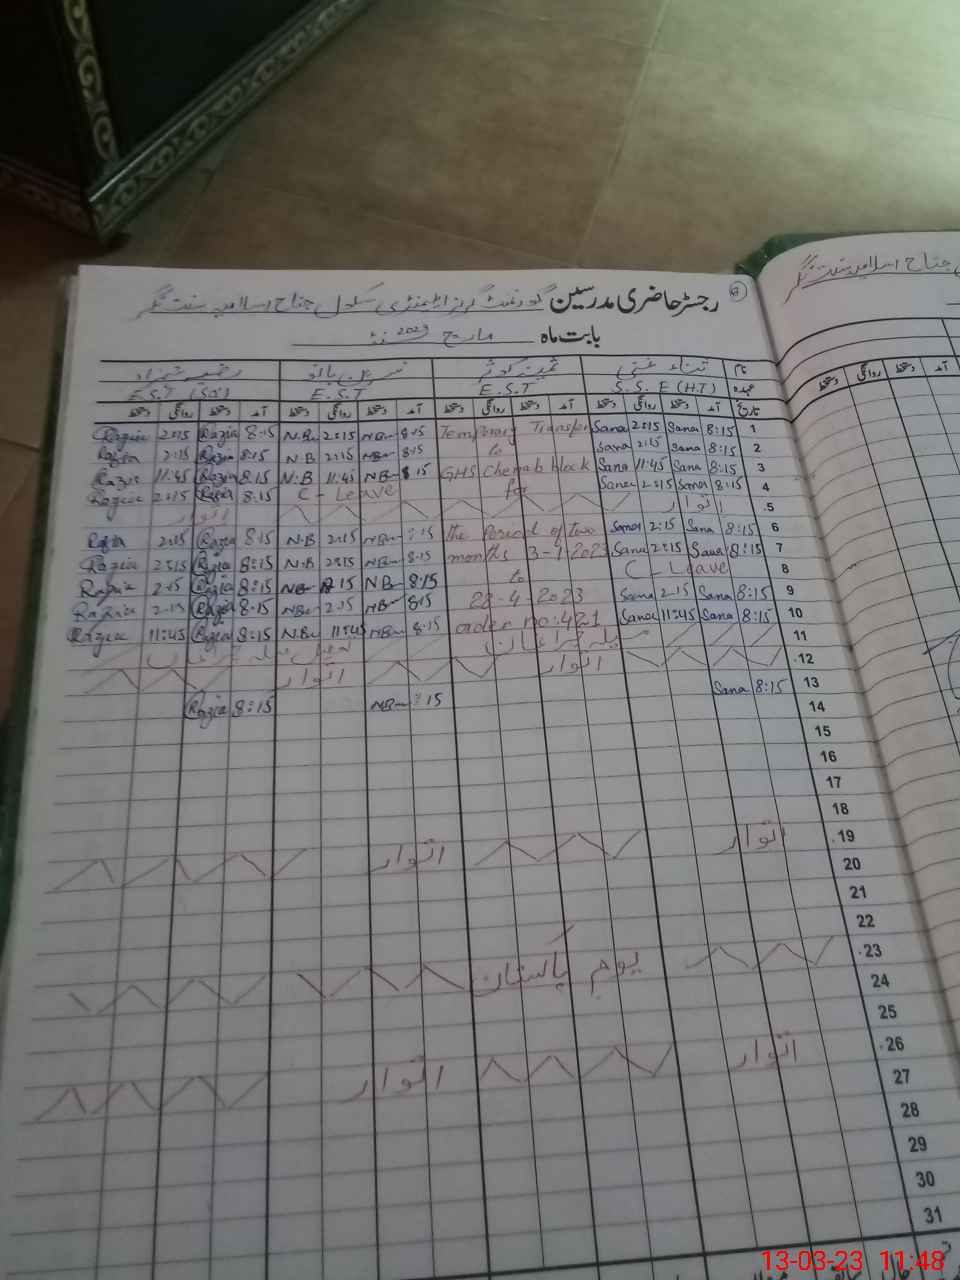 رجسٹر حاضری مدرسین گورنمنٹ گرلز ایلیمنٹری سکول جناح اسلامیہ سنت نگر
بابت ماہ مارچ 2023
نام ثناء غنی ثمینہ کوثر نسرین بانو رضیہ شہزاد
عہدہ S.S.E (H.T) E.S.T E.S.T E.S.T (Sci)
تاریخ آمد دستخط روانگی دستخط آمد دستخط روانگی دستخط آمد دستخط روانگی دستخط آمد دستخط روانگی دستخط
Razia 2:15 Razia 8:15 N.B 2:15 NB 8:15 Temporary Transfer Sana 2:15 Sana 8:15 1
Razia 2:15 Razia 8:15 N.B 2:15 NB 8:15 to Sana 2:15 Sana 8:15 2
Razia 11:45 Razia 8:15 N.B 11:45 NB 8:15 GHS Chenab block Sana 11:45 Sana 8:15 3
Razia 2:15 Razia 8:15 C - Leave for Sana 2:15 Sana 8:15 4
اتوار اتوار 5
Razia 2:15 Razia 8:15 N.B 2:15 NB 8:15 the Period of two Sana 2:15 Sana 8:15 6
Razia 2:15 Razia 8:15 N.B 2:15 NB 8:15 months 3-1-2023 Sana 2:15 Sana 8:15 7
Razia 2:15 Razia 8:15 NB 2:15 NB 8:15 to C - Leave 8
Razia 2:15 Razia 8:15 NB 2:15 NB 8:15 28-4-2023 Sana 2:15 Sana 8:15 9
Razia 11:45 Razia 8:15 N.B 11:45 NB 8:15 order no:421 Sana 11:45 Sana 8:15 10
میلہ چراغاں میلہ چراغاں 11
اتوار اتوار 12
Razia 8:15 NB 8:15 Sana 8:15 13
14
15
16
17
18
اتوار اتوار 19
20
21
22
یوم پاکستان 23
24
25
اتوار اتوار 26
27
28
29
30
31
جناح اسلامیہ سنت نگر
آمد دستخط روانگی دستخط
13-03-23 11:48